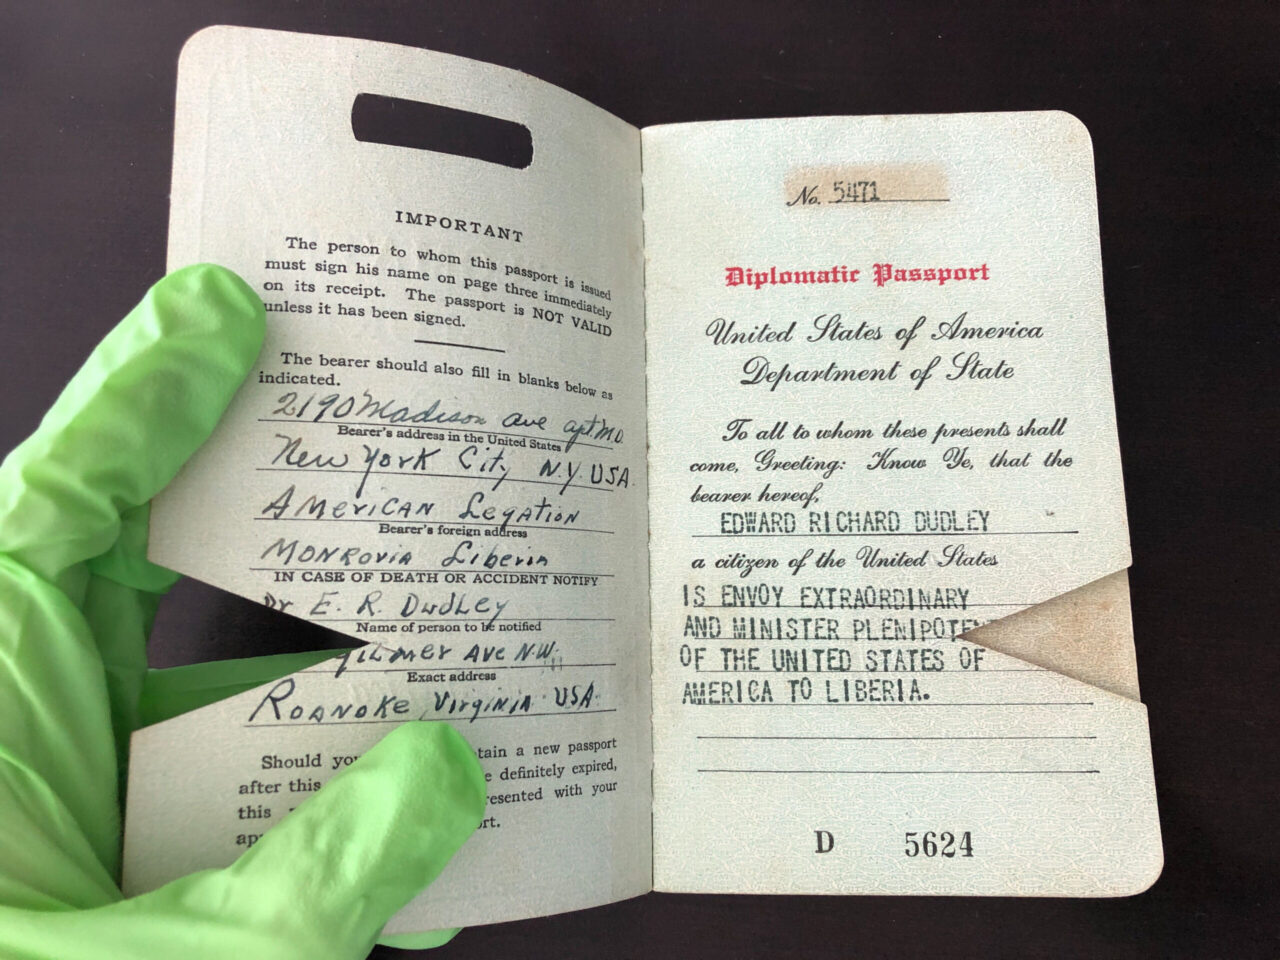 IMPORTANT
The person to whom this passport is issued
must sign his name on page three immediately
on its receipt. The passport is NOT VALID
unless it has been signed.
The bearer should also fill in blanks below as
indicated.
2190 Madison Ave apt.
Bearer's address in the United States
New York City N.Y. USA
American Legation
Bearer's foreign address
Monrovia Liberia
IN CASE OF DEATH OR ACCIDENT NOTIFY
Dr E. R. Dudley
Name of person to be notified
Gilmer Ave N.W.
Exact address
Roanoke Virginia USA
Should you tain a new passport
after this definitely expired,
this resented with your
No. 5471
Diplomatic Passport
United States of America
Department of State
To all to whom these presents shall
come, Greeting: Know Ye, that the
bearer hereof,
EDWARD RICHARD DUDLEY
a citizen of the United States
IS ENVOY EXTRAORDINARY
AND MINISTER PLENIPOTEN
OF THE UNITED STATES OF
AMERICA TO LIBERIA.
D 5624